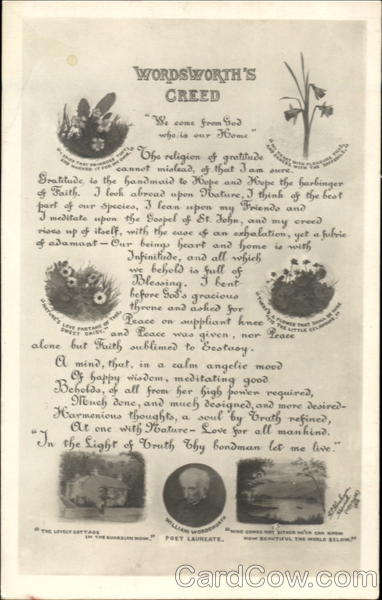 WORDSWORTH'S
CREED
"We come from God
who is our Home"
The religion of gratitude
cannot mislead, of that I am sure.
Gratitude, is the handmaid to Hope and Hope the harbinger
of Faith. I look abroad upon Nature, I think of the best
part of our species, I lean upon my Friends and
I meditate upon the Gospel of St. John, and my creed
rises up of itself, with the ease of an exhalation, yet a fabric
of adamant – Our beings heart and home is with
Infinitude, and all which
we behold is full of
Blessing. I bent
before God's gracious
throne and asked for
Peace on suppliant knee
and Peace was given, nor Peace
alone but Faith sublimed to Ecstasy.
SWEET DAISY.
TO THE LITTLE CELANDINE."
A mind, that, in a calm angelic mood
Of happy wisdom, meditating good
Beholds, of all from her high power required,
Much done, and much designed, and more desired-
Harmonious thoughts, a soul by Truth refined,
At one with Nature – Love for all mankind.
"In the Light of Truth Thy bondman let me live."
"THE LOVELY COTTAGE
IN THE GUARDIAN NOOK."
WILLIAM WORDSWORTH
POET LAUREATE.
"WHO COMES NOT HITHER NE'ER CAN KNOW
HOW BEAUTIFUL THE WORLD BELOW."
CardCow.com